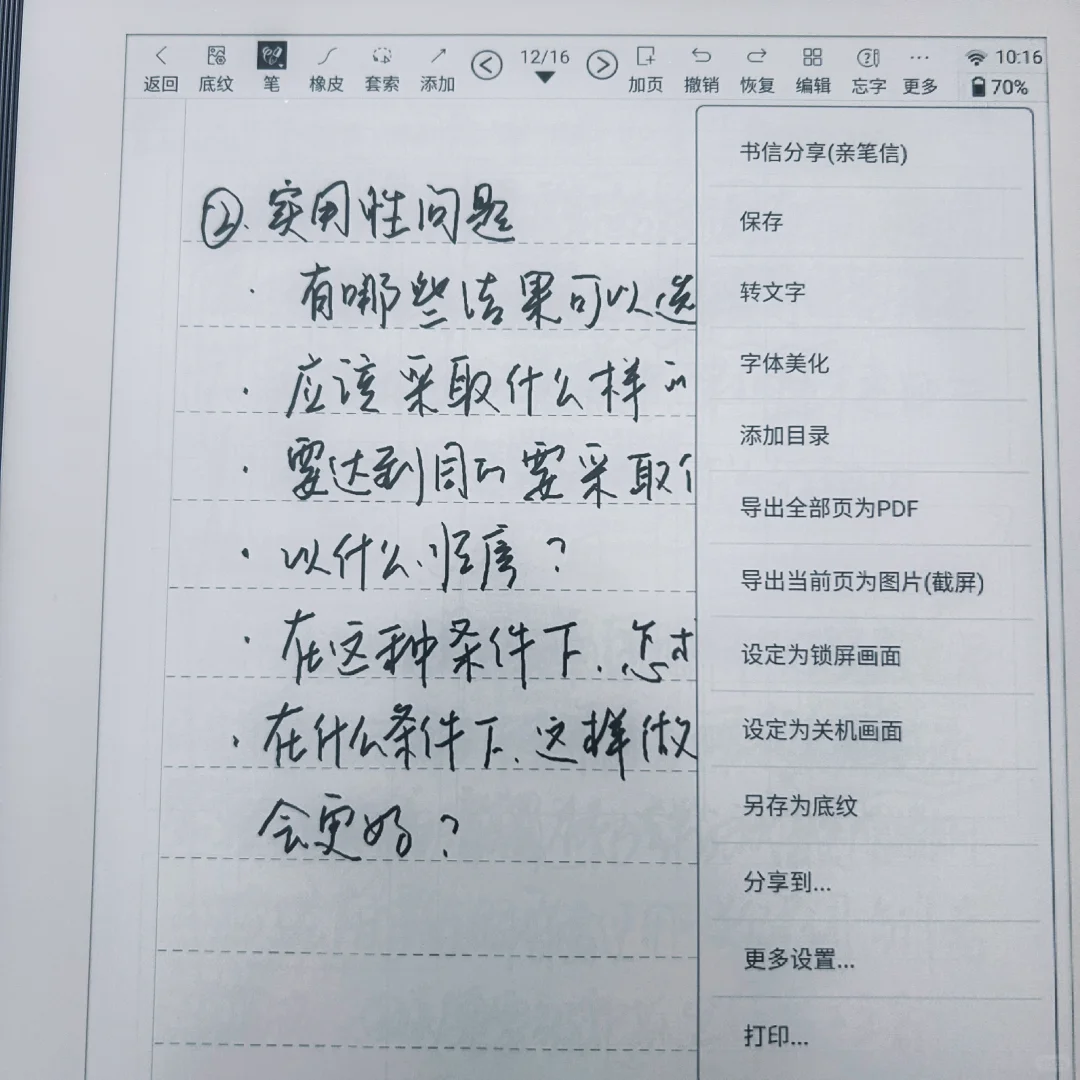 返回 底纹 笔 橡皮 套索 添加 12/16 加页 撤销 恢复 编辑 忘字 更多 10:16
70%
②. 实用性问题
· 有哪些结果可以选
· 应该采取什么样的
· 要达到目的要采取
· 以什么顺序?
· 在这种条件下.怎
· 在什么条件下.这样做
会更好?
书信分享(亲笔信)
保存
转文字
字体美化
添加目录
导出全部页为PDF
导出当前页为图片(截屏)
设定为锁屏画面
设定为关机画面
另存为底纹
分享到...
更多设置...
打印...